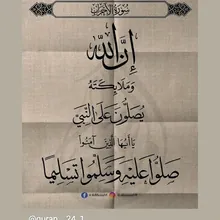 سورة الأحزاب
إن الله
وملائكته
يصلون على النبي
يا أيها الذين آمنوا
صلوا عليه وسلموا تسليما
@quran__24_1